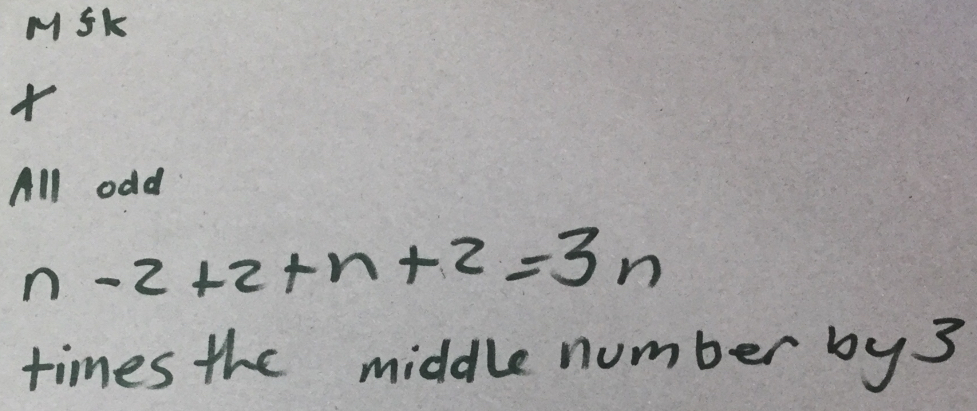 M $ k
+
All odd
n - 2 + 2 + n + 2 = 3n
times the middle number by 3